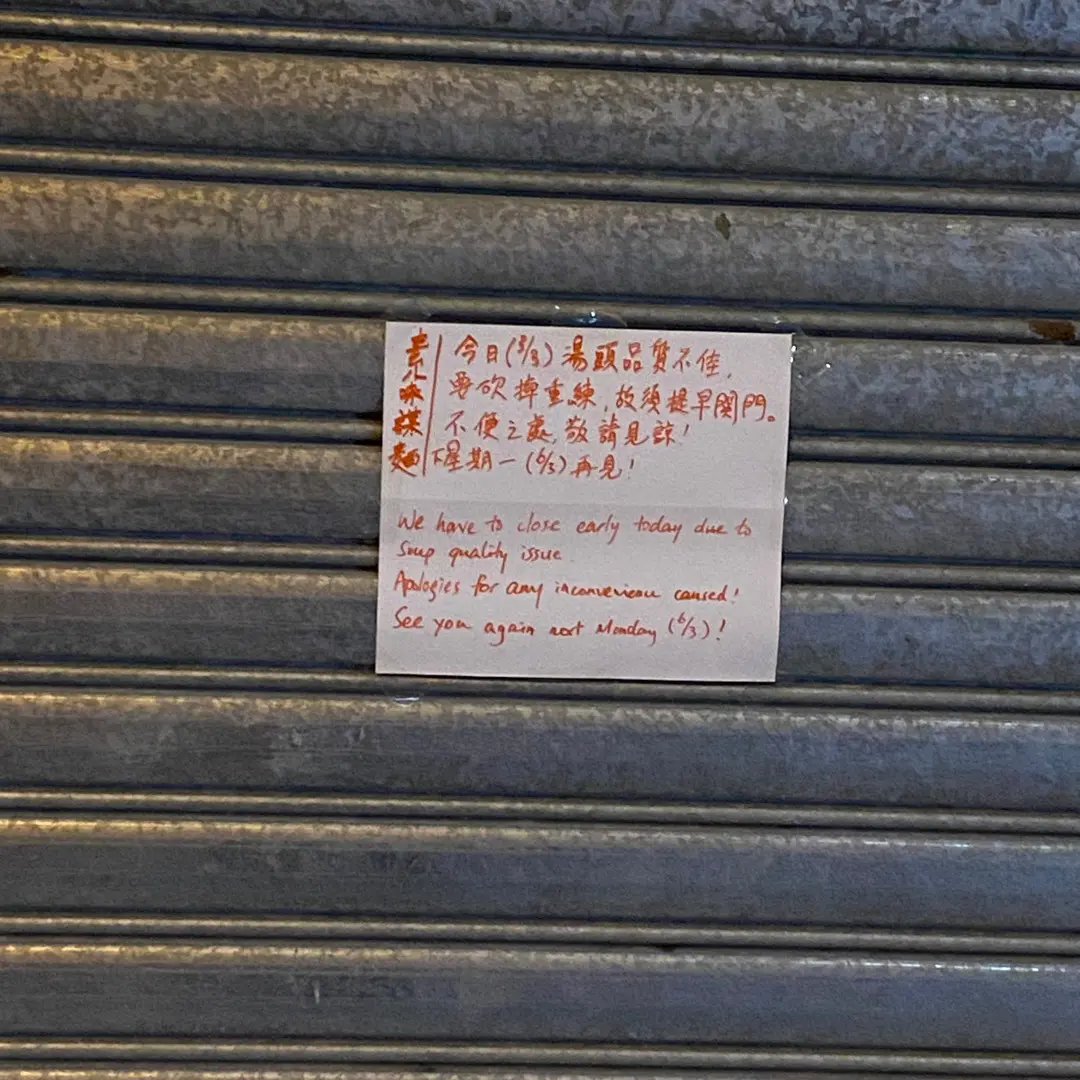 今日(3/3)湯頭品質不佳,
要砍掉重練,故須提早関門。
不便之處,敬請見諒!
下星期一(6/3)再見!
We have to close early today due to
soup quality issue.
Apologies for any inconvenience caused!
See you again next Monday (6/3)!